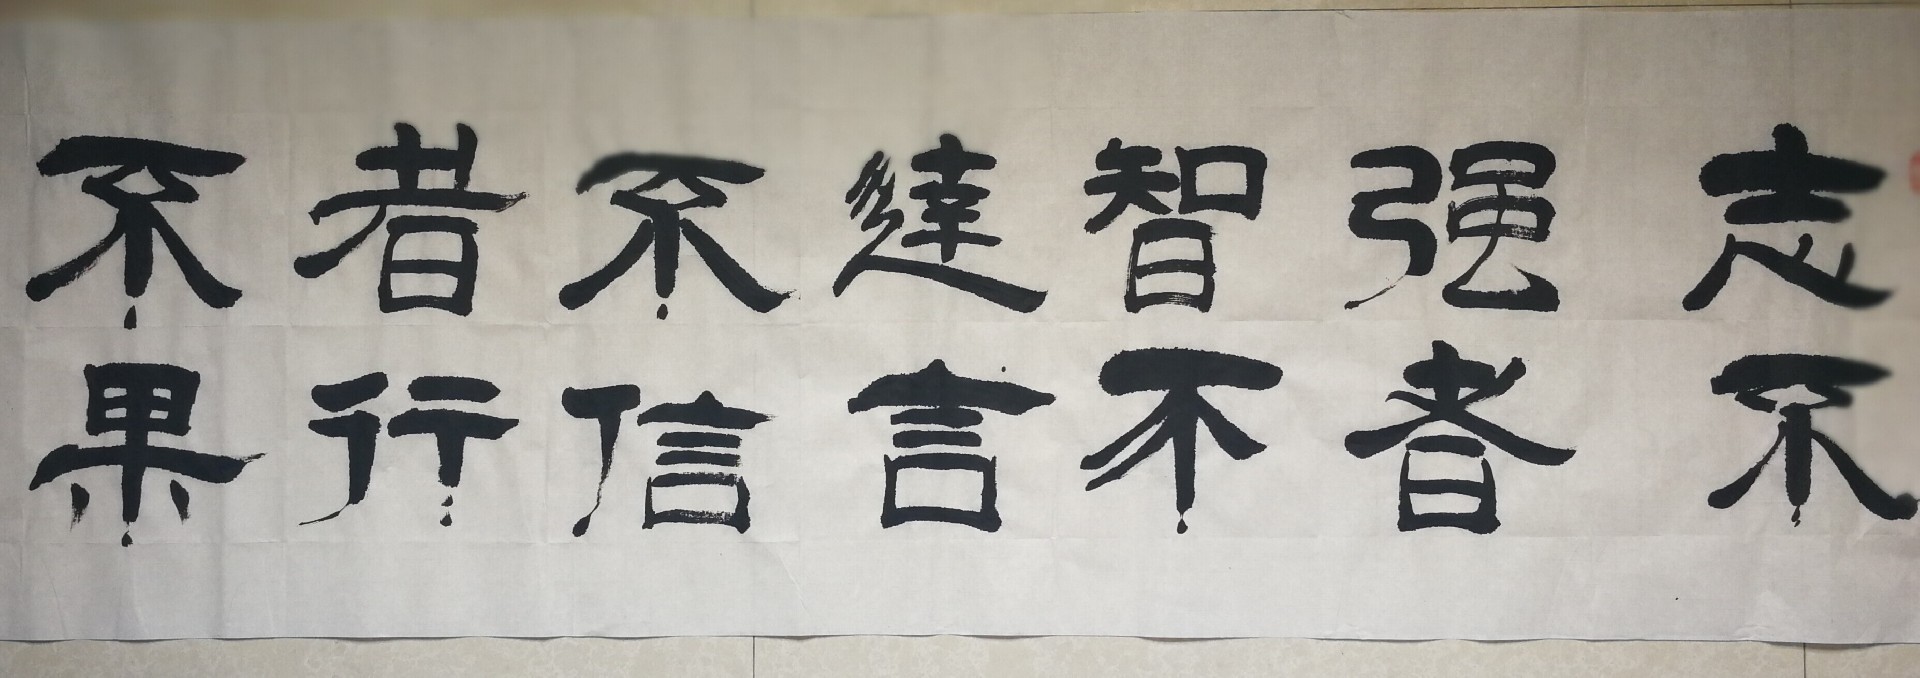 志不
强者
智不
達言
不信
者行
不果